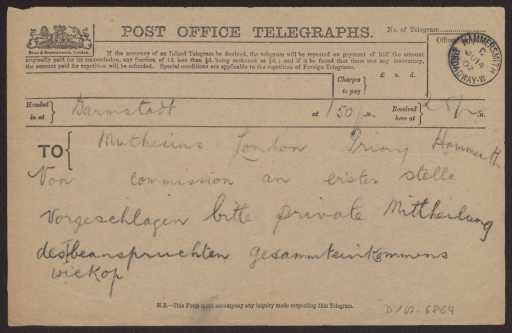 POST OFFICE TELEGRAPHS.
No. of Telegram
If the accuracy of an Inland Telegram be doubted, the telegram will be repeated on payment of half the amount
originally paid for its transmission, any fraction of 1d. less than ½d. being reckoned as ½d.; and if it be found that there was any inaccuracy,
the amount paid for repetition will be refunded. Special conditions are applicable to the repetition of Foreign Telegrams.
HAMMERSMITH
BROADWAY-W
Charges
to pay
£ s. d.
Handed
in at
Darmstadt
at 1 50
Received
here at
TO
Muthesius London Priory Hammersth
Von commission an erster stelle
vorgeschlagen bitte private Mittheilung
des beanspruchten gesammteinkommens
wickop
N.B.—This Form must accompany any inquiry made respecting this Telegram.